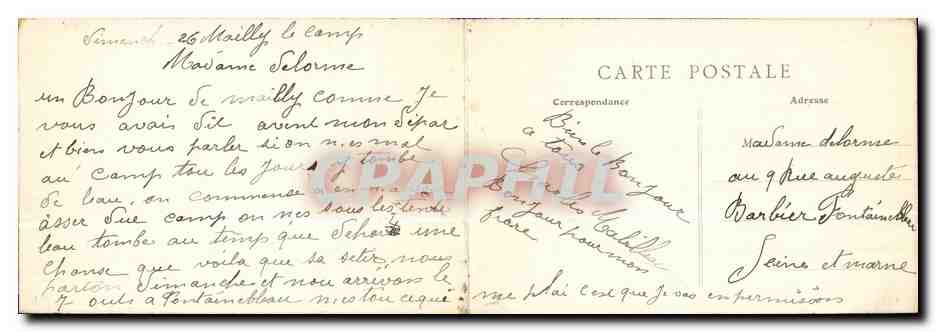 Dimanch 26 Mailly le camp
Madame delorme
un Bonjour de mailly comme Je
vous avais dit avent mon dépar
et bien vous parler si on n,es mal
au camp tou les Jours y tombe
de leau, on commence a en na
àsser due camp on n,es sous les tende
leau tombe au temp que dehors une
chause que voila que sa seter nous
parton dimanche et nou arrivons le
7 outs a Fontainebleau n,es tou ce qui
CARTE POSTALE
Correspondance
Bien le Bonjour
a tous
Bonjour pour mon
frare
me plai c'est que Je vas en permisions
Adresse
Madame delorme
au 9 Rue auguste
Barbier Fontainebleau
Seine et marne
CPAPHIL